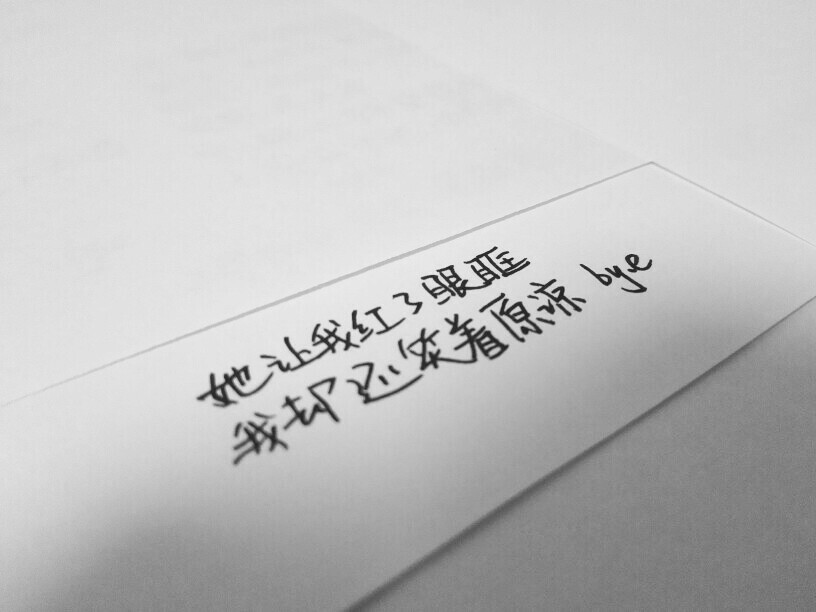 她让我红了眼眶
我却还笑着原凉 bye